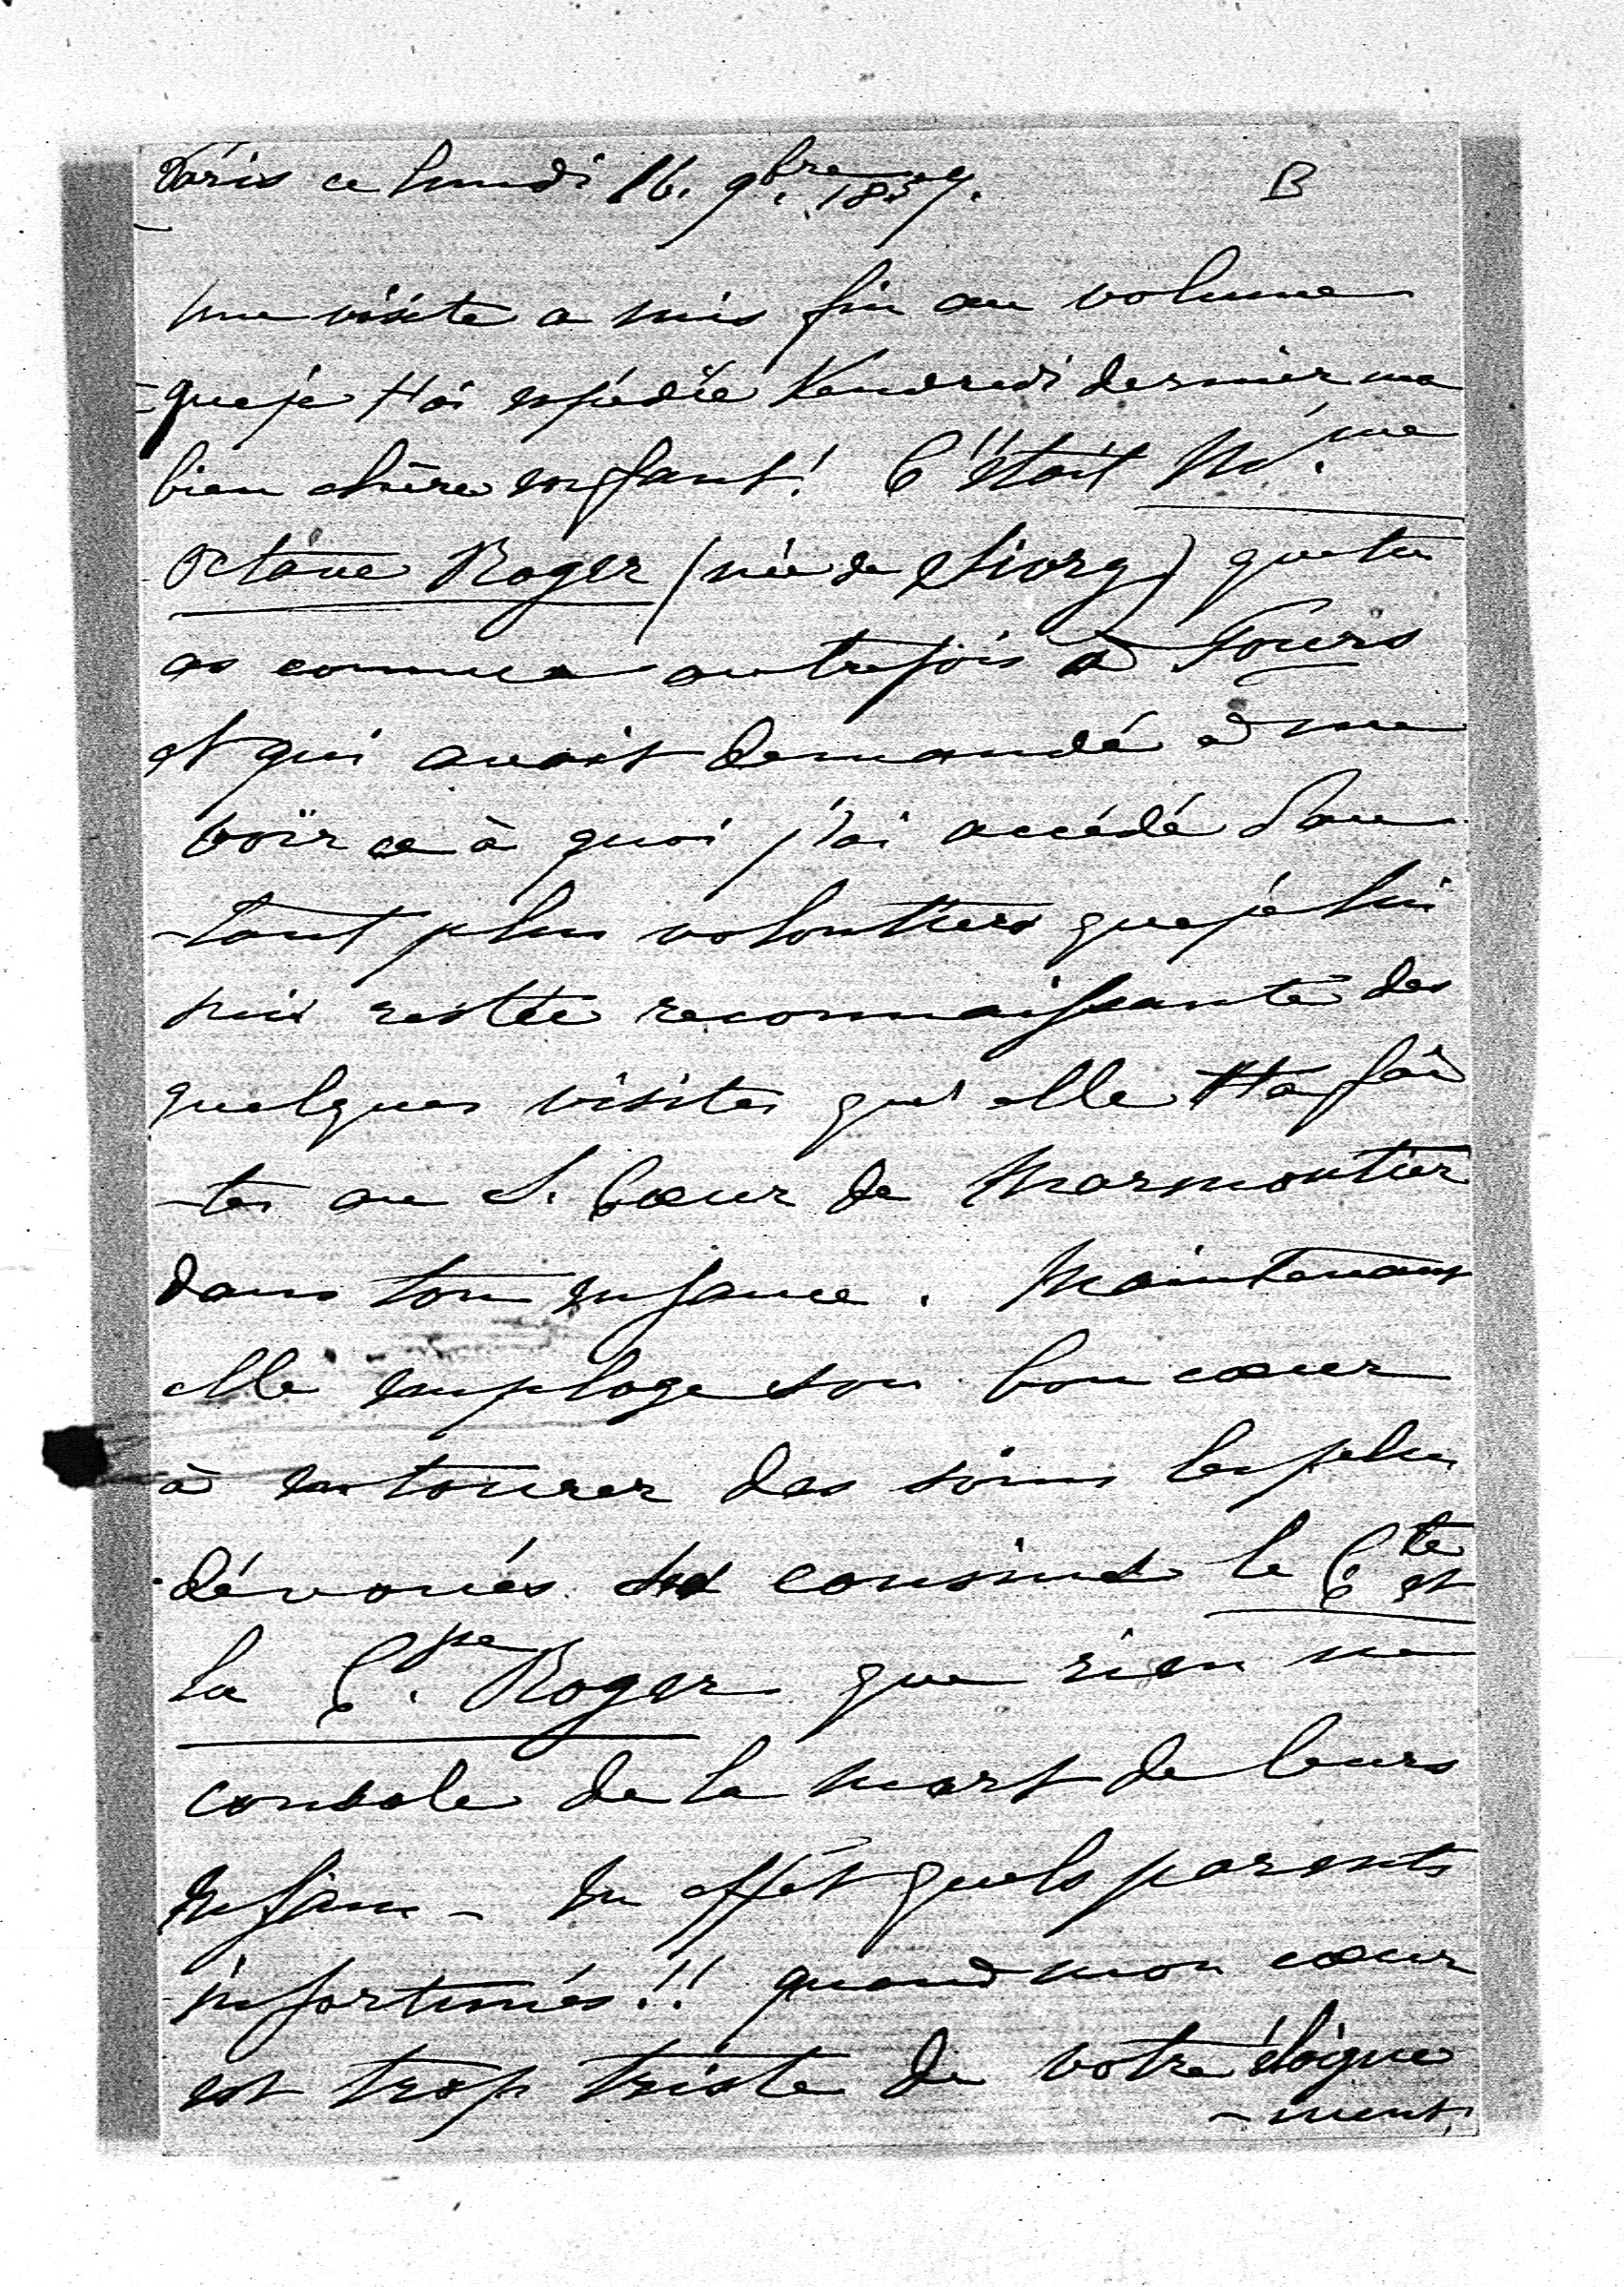 Paris ce lundi 16. 9bre 1857. B
une visite a mis fin au volume
que je t'ai expédié Vendredi dernier ma
bien chère enfant! C'était Me.
Octave Roger (née de Sivry) que tu
as connue autrefois à Tours
et qui avait demandé à me
voir ce à quoi j'ai accédé d'au
-tant plus volontiers que je lui
suis restée reconnaissante des
quelques visites qu'elle t'a fai
-tes au S. Coeur de Marmoutier
dans ton enfance. Maintenant
elle employe son bon coeur
à entourer des soins les plus
dévoués ses cousins le Cte et
la Csse Roger que rien ne
console de la mort de leurs
enfans - En effet quels parents
infortunés!! quand mon coeur
est trop triste de votre éloigne
-ment